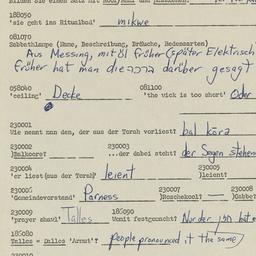 188050
'sie geht ins Ritualbad' mikwe
081070
Sabbathlampe (Name, Beschreibung, Bräuche, Redensarten)
Aus Messing, mit Öl früher (später Elektrisch
früher hat man die ברכה darüber gesagt
058040
'ceiling' Decke
081100
'the vick is too short' Oder
230001
Wie nennt man den, der aus der Torah vorliest? bal kōra
230002
]Balkore?
230003
...der dabei steht? der Segen stehen
230004
'er liest(aus der Torah)' leient
]leient?
230006
'Gemeindevorstand' Parness
230007
]Roschekool?
230008
]Gabbe?
230009
'prayer shawl' Talles
186090
Womit festgemacht?
186080
Talles = Dalles 'Armut'? people pronounced it the same